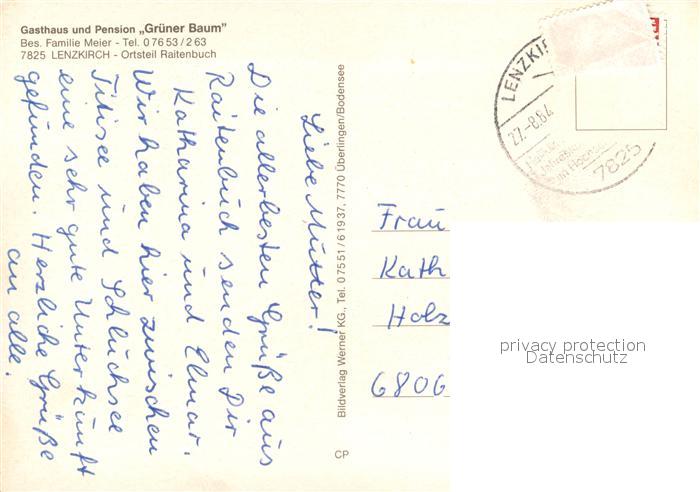 Gasthaus und Pension „Grüner Baum"
Bes. Familie Meier - Tel. 0 76 53 / 2 63
7825 LENZKIRCH - Ortsteil Raitenbuch
Liebe Mutter!
Die allerbesten Grüße aus
Raitenbuch senden Dir
Katharina und Elmar.
Wir haben hier zwischen
Titisee und Schluchsee
eine sehr gute Unterkunft
gefunden. Herzliche Grüße
an alle.
Bildverlag Werner KG., Tel. 0 75 51 / 6 19 37, 7770 Überlingen/Bodensee
CP
LENZKI
27.-8.84
7825
Frau
Kath
Holz
6806
privacy protection
Datenschutz